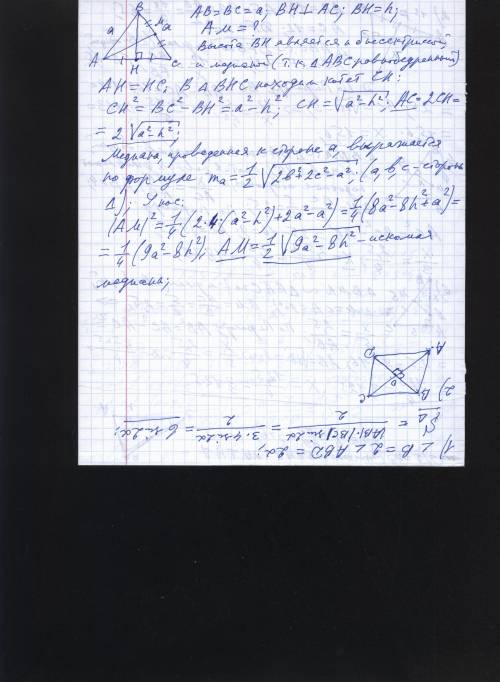 B
a
M
a
A
H
C
AB=BC=a; BH⊥AC; BH=h;
AM=?
Высота BH является и биссектрисой,
и медианой (т.к. ΔABC равнобедренный)
AH=HC, В ΔBHC находим катет CH:
CH²=BC²-BH²=a²-h²; CH=√(a²-h²); AC=2CH=
=2√(a²-h²);
Медиана, проведенная к стороне a, выражается
по формуле mₐ=1/2√(2b²+2c²-a²); (a,b,c-стороны
Δ); У нас:
|AM|²=1/4(2·4·(a²-h²)+2a²-a²)=1/4(8a²-8h²+a²)=
=1/4(9a²-8h²); AM=1/2√(9a²-8h²)-искомая
медиана;
1) ∠B=2∠ABD=2α;
SΔ=|AB|·|BC|sin2α/2=3·4sin2α/2=6sin2α;
2)
C
B
O
D
A